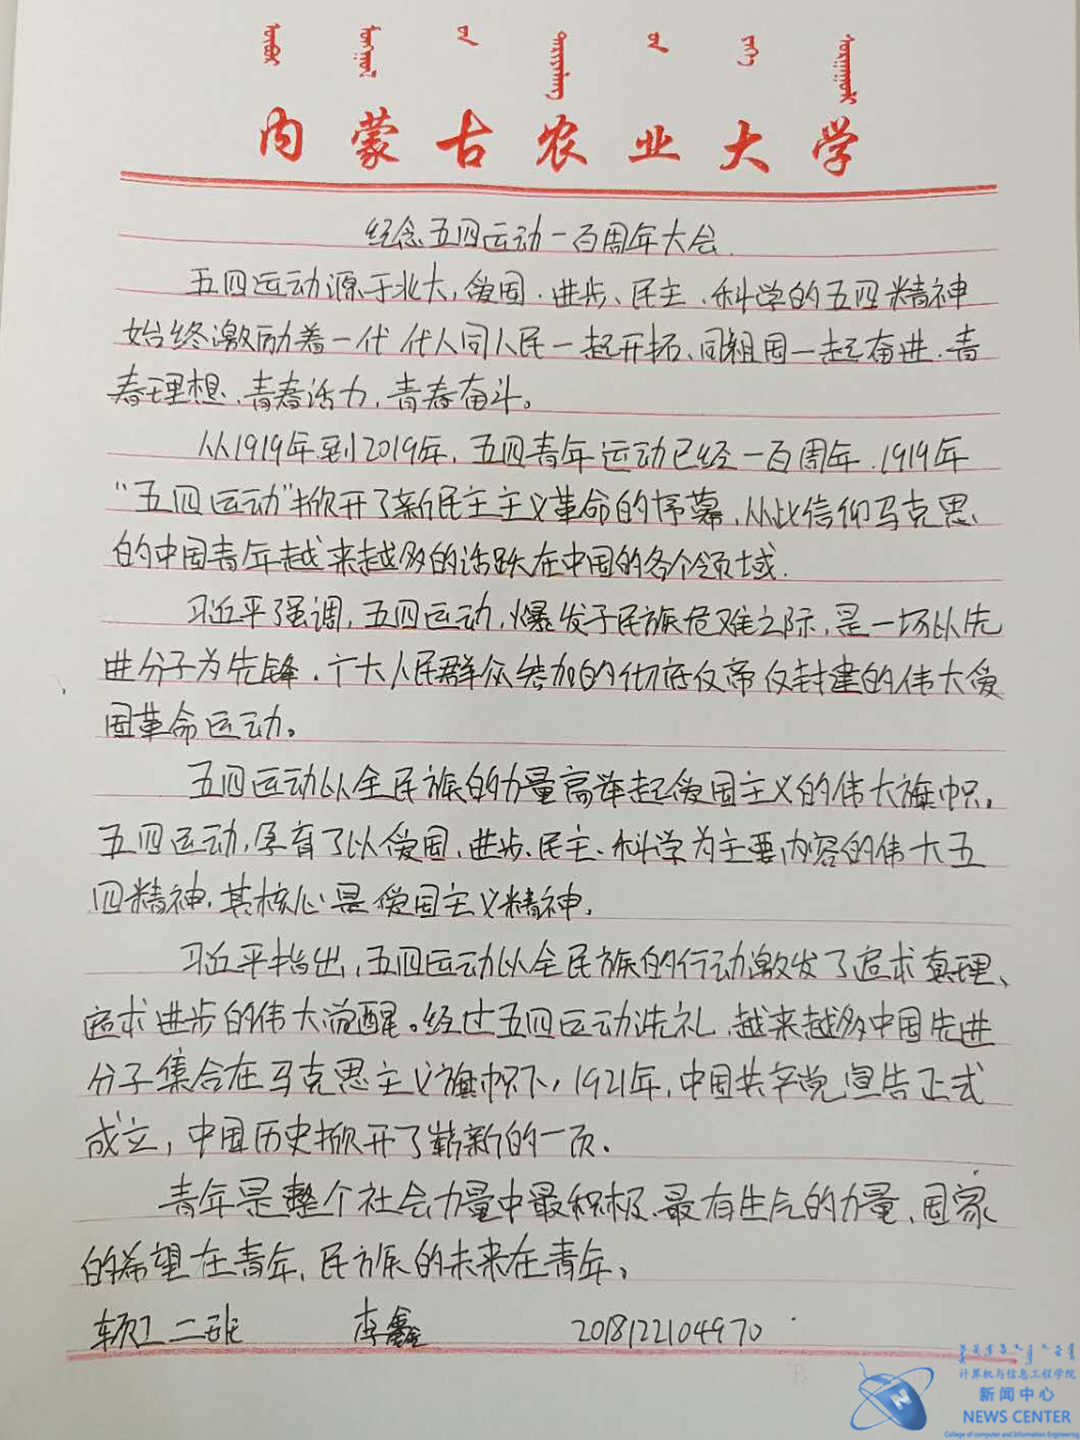 内蒙古农业大学
纪念五四运动一百周年大会
五四运动源于北大,爱国、进步、民主、科学的五四精神
始终激励着一代代人同人民一起开拓、同祖国一起奋进.青
春理想、青春活力,青春奋斗。
从1919年到2019年,五四青年运动已经一百周年.1919年
“五四运动”掀开了新民主主义革命的序幕,从此信仰马克思
的中国青年越来越多的活跃在中国的各个领域.
习近平强调,五四运动,爆发于民族危难之际,是一场以先
进分子为先锋、广大人民群众参加的彻底反帝反封建的伟大爱
国革命运动。
五四运动以全民族的力量高举起爱国主义的伟大旗帜。
五四运动,孕育了以爱国、进步、民主、科学为主要内容的伟大五
四精神,其核心是爱国主义精神.
习近平指出,五四运动以全民族的行动激发了追求真理、
追求进步的伟大觉醒。经过五四运动洗礼,越来越多中国先进
分子集合在马克思主义旗帜下,1921年,中国共产党宣告正式
成立,中国历史掀开了崭新的一页.
青年是整个社会力量中最积极、最有生气的力量,国家
的希望在青年,民族的未来在青年,
软工二班 李鑫 2018122104970
计算机与信息工程学院
新闻中心
NEWS CENTER
College of computer and Information Engineering